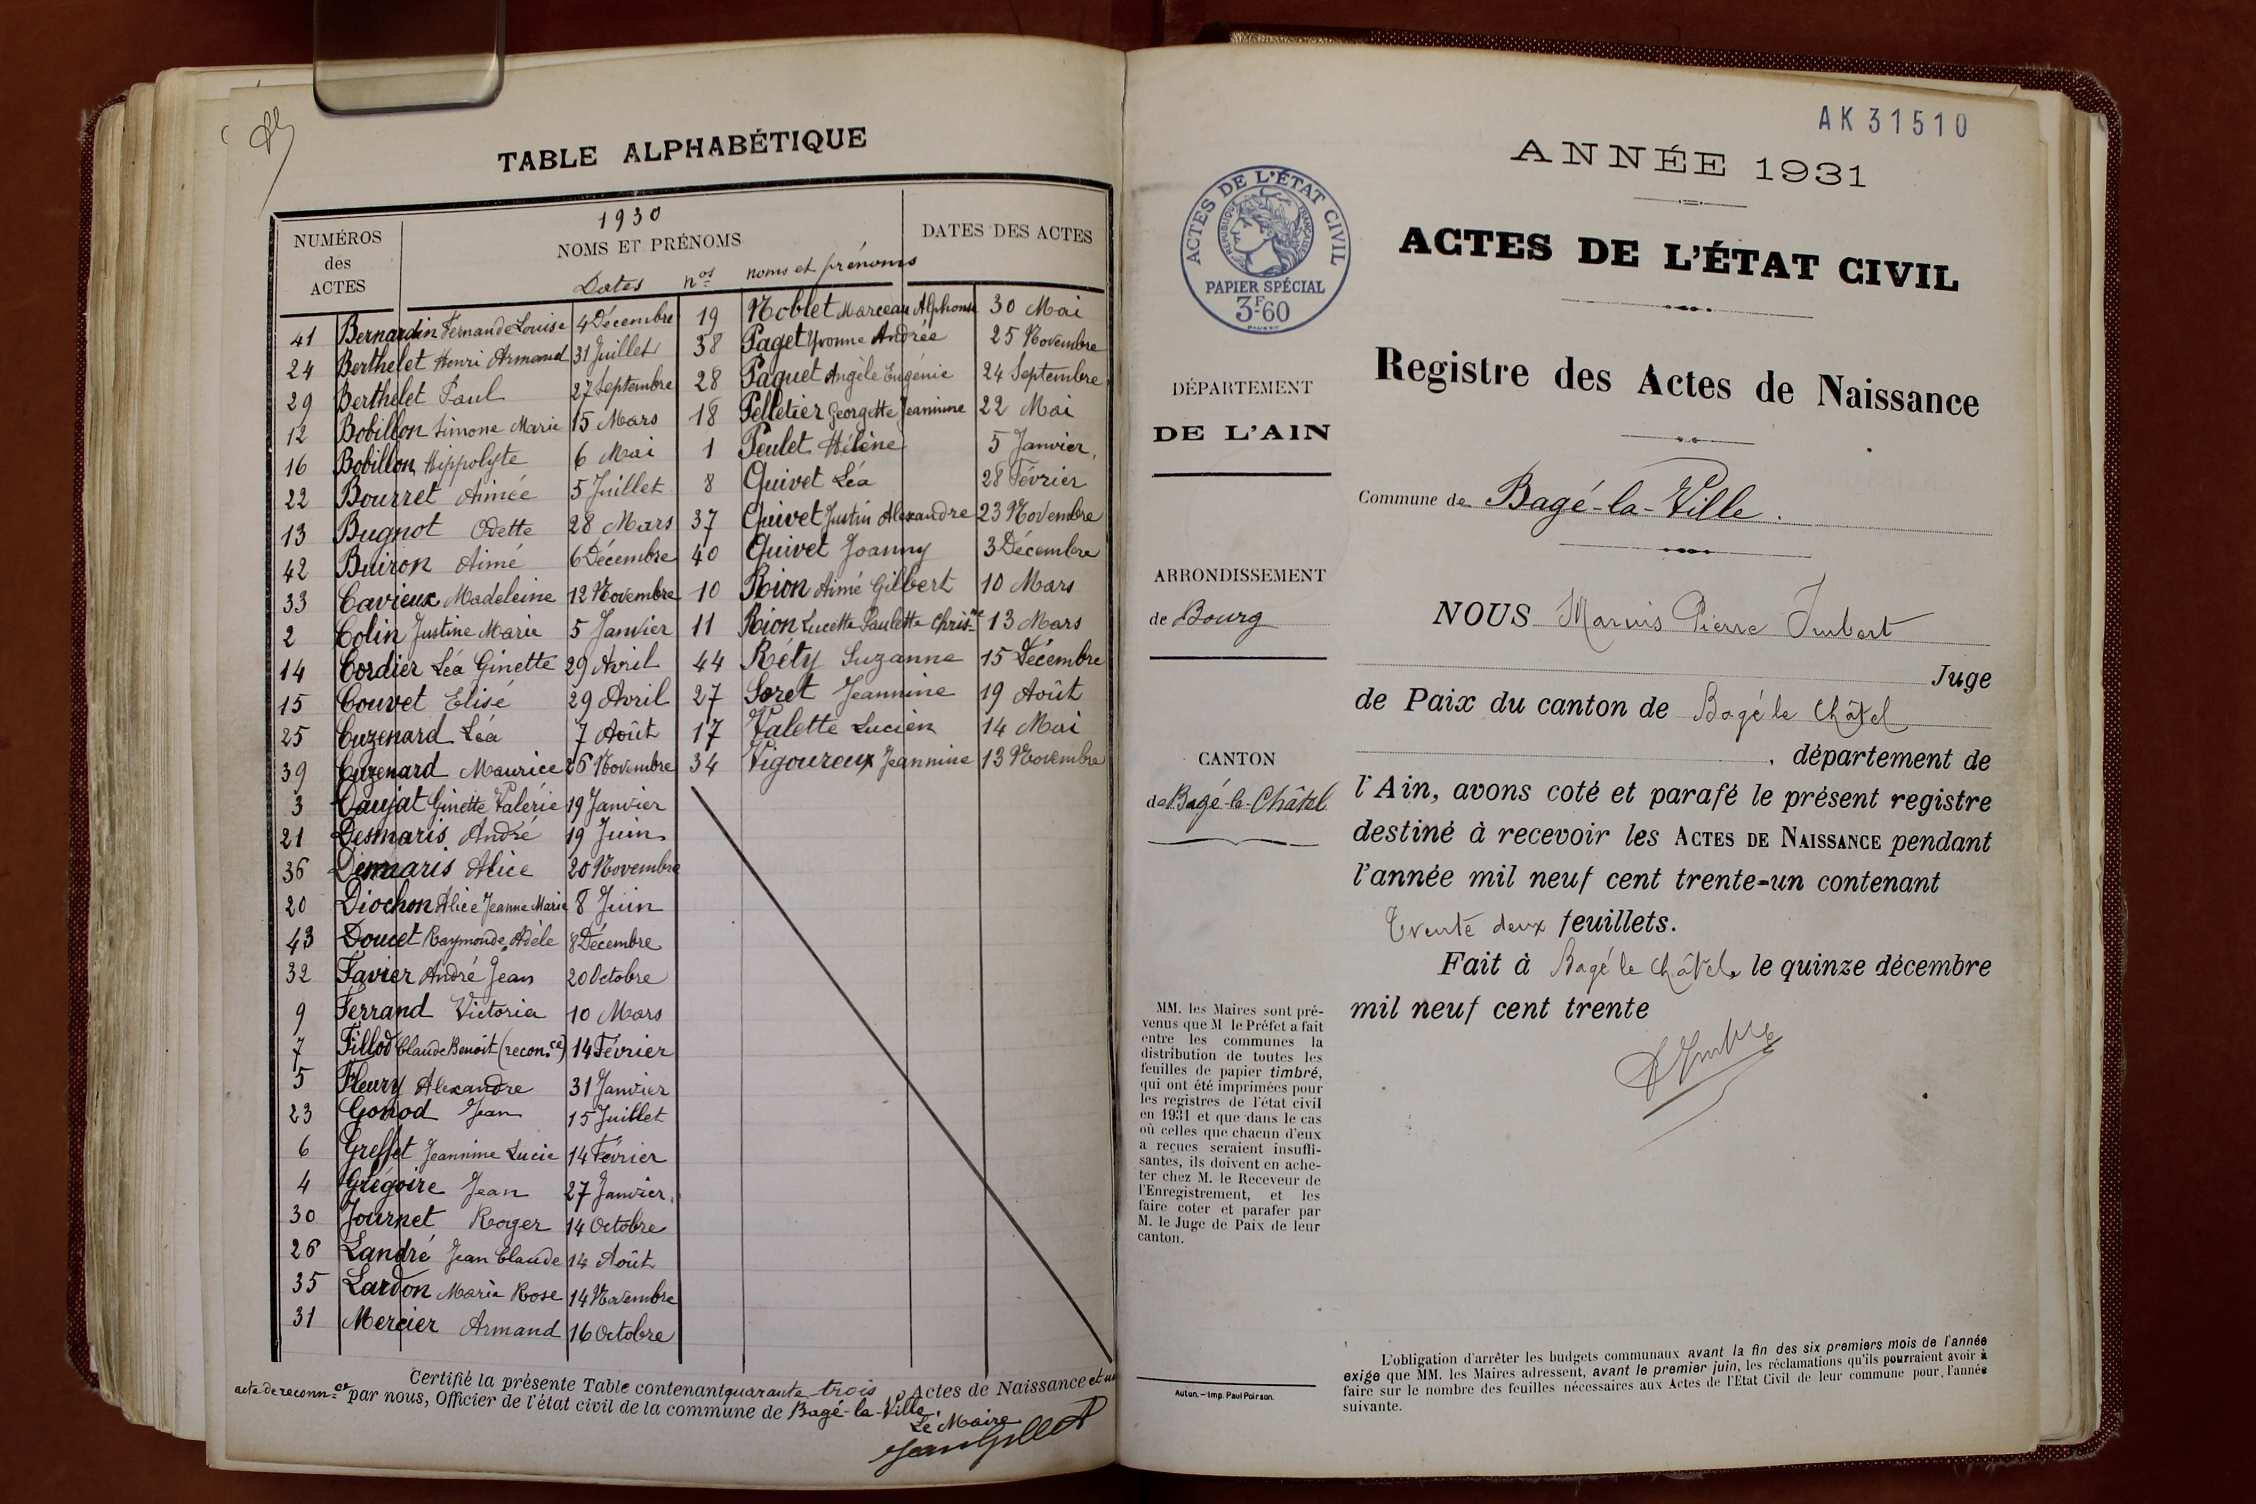 TABLE ALPHABÉTIQUE
NUMÉROS
des
ACTES
1930
NOMS ET PRÉNOMS
DATES DES ACTES
Dates nos noms et prénoms
41 Bernardin Fernande Louise 4 Décembre 19 Noblet Marceau Alphonse 30 Mai
24 Berthelet Henri Armand 31 Juillet 38 Paget Yvonne Andrée 25 Novembre
29 Berthelet Paul 27 Septembre 28 Paquet Angèle Eugénie 24 Septembre
12 Bobillon Simone Marie 15 Mars 18 Pelletier Georgette Jeannine 22 Mai
16 Bobillon Hippolyte 6 Mai 1 Peulet Hélène 5 Janvier
22 Bourret Aimée 5 Juillet 8 Quivet Léa 28 Février
13 Bugnot Odette 28 Mars 37 Quivet Justin Alexandre 23 Novembre
42 Buiron Aimé 6 Décembre 40 Quivet Joanny 3 Décembre
33 Cavieux Madeleine 12 Novembre 10 Rion Aimé Gilbert 10 Mars
2 Colin Justine Marie 5 Janvier 11 Rion Lucette Paulette Chris.ne 13 Mars
14 Cordier Léa Ginette 29 Avril 44 Réty Suzanne 15 Décembre
15 Couvet Elisé 29 Avril 27 Soret Jeannine 19 Août
25 Cuzenard Léa 7 Août 17 Valette Lucien 14 Mai
39 Cuzenard Maurice 26 Novembre 34 Vigoureux Jeannine 13 Novembre
3 Daujat Ginette Valérie 19 Janvier
21 Desmaris André 19 Juin
36 Desmaris Alice 20 Novembre
20 Diochon Alice Jeanne Marie 8 Juin
43 Doucet Raymonde Adèle 8 Décembre
32 Favier André Jean 20 Octobre
9 Ferrand Victoria 10 Mars
7 Fillod Claude Benoit (recon.ce) 14 Février
5 Fleury Alexandre 31 Janvier
23 Gonod Jean 15 Juillet
6 Greffet Jeannine Lucie 14 Février
4 Grégoire Jean 27 Janvier
30 Journet Roger 14 Octobre
26 Landré Jean Claude 14 Août
35 Lardon Marie Rose 14 Novembre
31 Mercier Armand 16 Octobre
Certifié la présente Table contenant quarante trois Actes de Naissance et un
acte de reconn.ce par nous, Officier de l'état civil de la commune de Bagé-la-Ville.
Le Maire
Jean Gillet
AK 31510
ANNÉE 1931
ACTES DE L'ÉTAT CIVIL
RÉPUBLIQUE FRANÇAISE
PAPIER SPÉCIAL
3F60
ACTES DE L'ÉTAT CIVIL
Registre des Actes de Naissance
DÉPARTEMENT
DE L'AIN
Commune de Bagé-la-Ville.
ARRONDISSEMENT
de Bourg
CANTON
de Bagé-le-Châtel
NOUS Marius Pierre Imbert
Juge
de Paix du canton de Bagé le Châtel
, département de
l'Ain, avons coté et parafé le présent registre
destiné à recevoir les ACTES DE NAISSANCE pendant
l'année mil neuf cent trente-un contenant
Trente deux feuillets.
Fait à Bagé le Châtel, le quinze décembre
mil neuf cent trente
MM. les Maires sont pré-
venus que M le Préfet a fait
entre les communes la
distribution de toutes les
feuilles de papier timbré,
qui ont été imprimées pour
les registres de l'état civil
en 1931 et que dans le cas
où celles que chacun d'eux
a reçues seraient insuffi-
santes, ils doivent en ache-
ter chez M. le Receveur de
l'Enregistrement, et les
faire coter et parafer par
M. le Juge de Paix de leur
canton.
Autun. — Imp. Paul Poirson.
L'obligation d'arrêter les budgets communaux avant la fin des six premiers mois de l'année
exige que MM. les Maires adressent, avant le premier juin, les réclamations qu'ils pourraient avoir à
faire sur le nombre des feuilles nécessaires aux Actes de l'Etat Civil de leur commune pour l'année
suivante.